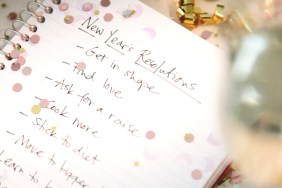 New Year's Resolutions
- Get in shape
- Find love
- Ask for a raise
- Cook more
- Stick to diet
- Move to bigger
Learn to